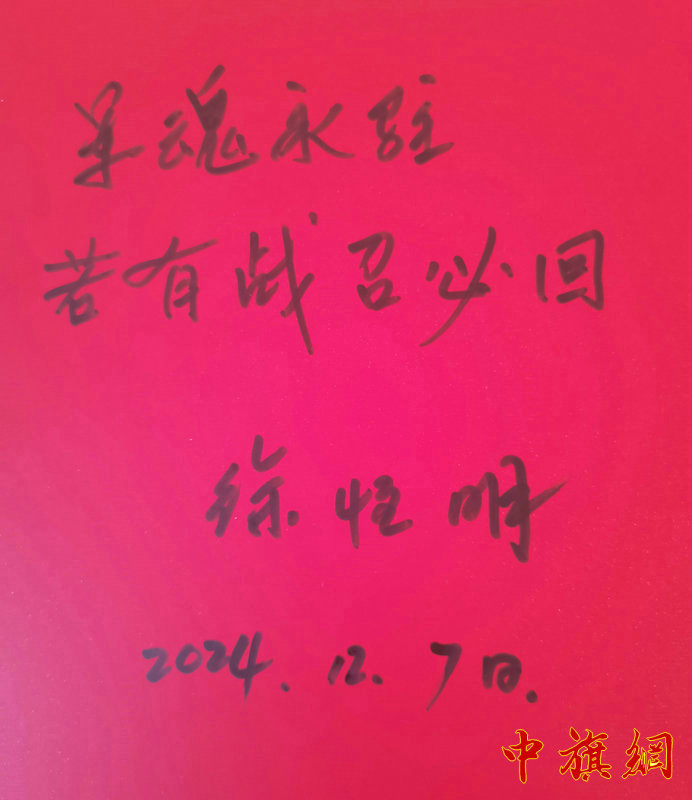 军魂永驻
若有战召必回
徐恒明
2024.12.7日.
中旗網